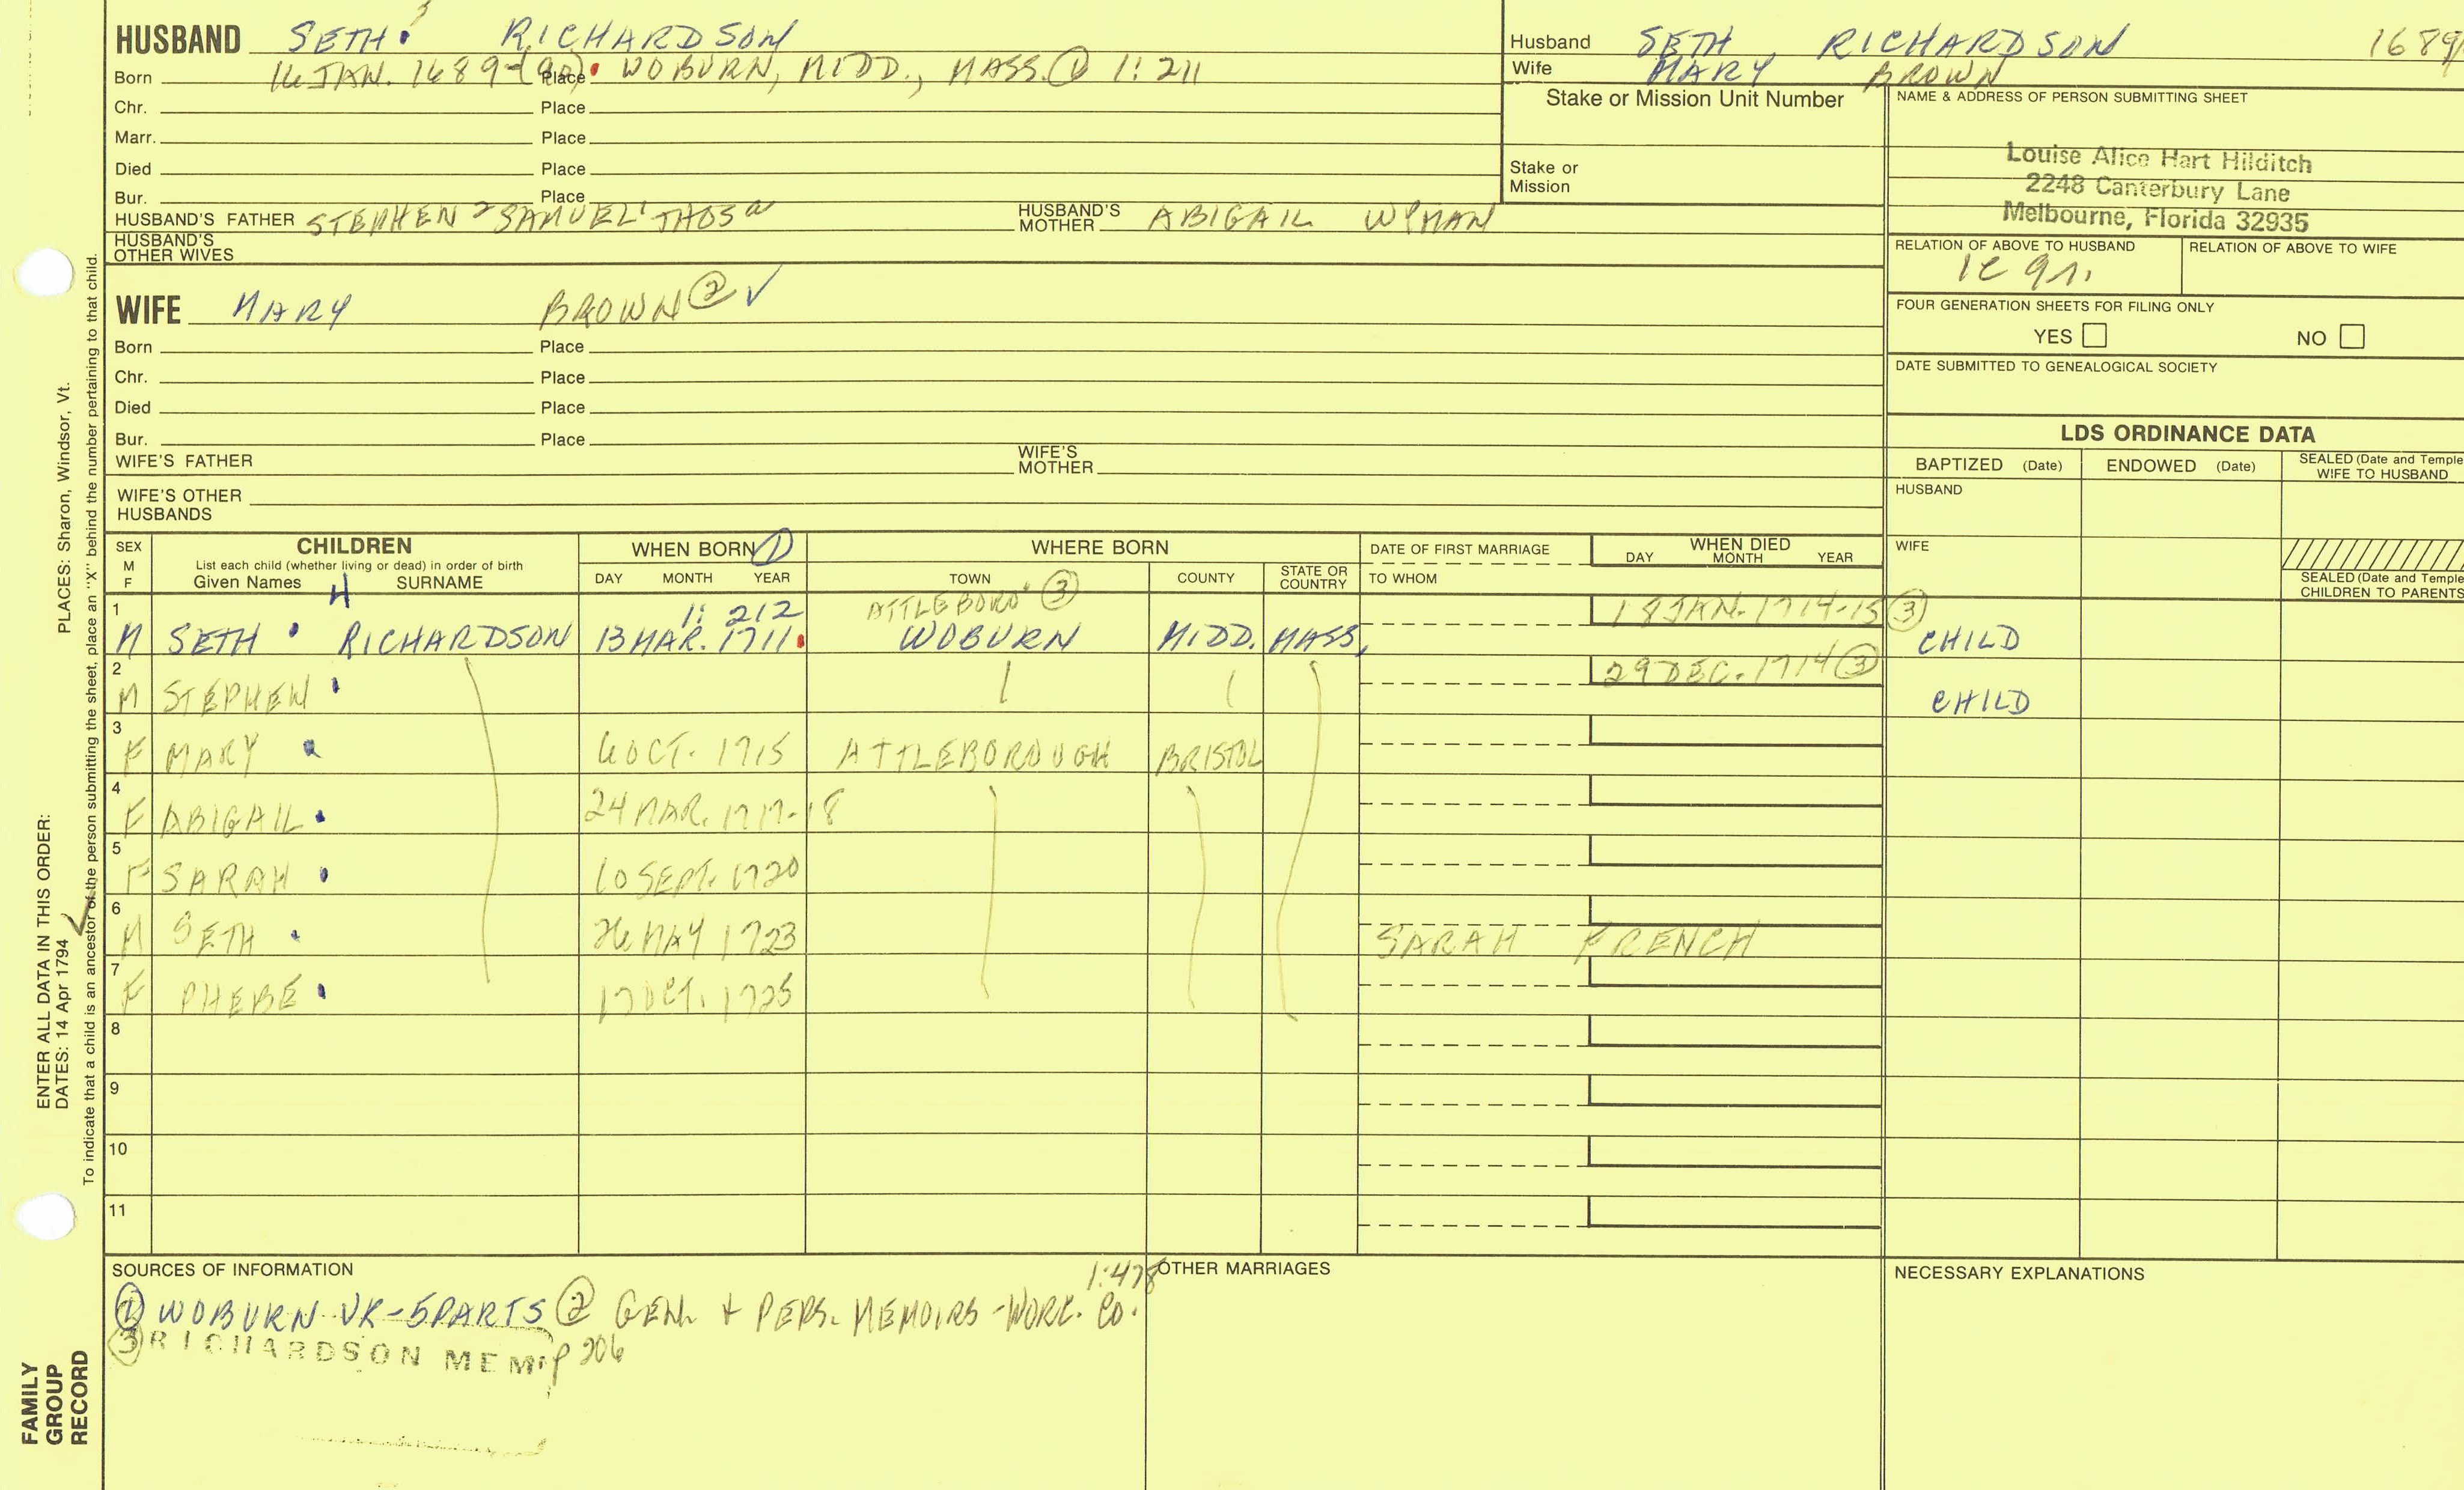 HUSBAND SETH RICHARDSON
Born 16 JAN. 1689-(90) Place WOBURN, MIDD., MASS. ① 1:211
Chr. Place
Marr. Place
Died Place
Bur. Place
HUSBAND'S FATHER STEPHEN² SAMUEL¹ THOSª HUSBAND'S MOTHER ABIGAIL WYMAN
HUSBAND'S OTHER WIVES
WIFE MARY BROWN ② ✓
Born Place
Chr. Place
Died Place
Bur. Place
WIFE'S FATHER WIFE'S MOTHER
WIFE'S OTHER HUSBANDS
Husband SETH, RICHARDSON 1689/
Wife MARY BROWN
Stake or Mission Unit Number
Stake or Mission
NAME & ADDRESS OF PERSON SUBMITTING SHEET
Louise Alice Hart Hilditch
2248 Canterbury Lane
Melbourne, Florida 32935
RELATION OF ABOVE TO HUSBAND RELATION OF ABOVE TO WIFE
FOUR GENERATION SHEETS FOR FILING ONLY
YES NO
DATE SUBMITTED TO GENEALOGICAL SOCIETY
LDS ORDINANCE DATA
BAPTIZED (Date) ENDOWED (Date) SEALED (Date and Temple) WIFE TO HUSBAND
HUSBAND
WIFE
SEALED (Date and Temple) CHILDREN TO PARENTS
SEX M F
CHILDREN
List each child (whether living or dead) in order of birth
Given Names SURNAME
WHEN BORN ①
DAY MONTH YEAR
WHERE BORN
TOWN COUNTY STATE OR COUNTRY
DATE OF FIRST MARRIAGE
TO WHOM
WHEN DIED
DAY MONTH YEAR
4
1 1:212 ATTLEBORO' ③ 18 JAN. 1714-15 ③
M SETH RICHARDSON 13 MAR. 1711 WOBURN MIDD. MASS, CHILD
2 29 DEC. 1714 ③
M STEPHEN CHILD
3
F MARY 6 OCT. 1715 ATTLEBOROUGH BRISTOL
4
F ABIGAIL 24 MAR. 1717-18
5
F SARAH 10 SEPT. 1720
6
M SETH 26 MAY 1723 SARAH FRENCH
7
F PHEBE 17 OCT. 1725
8
9
10
11
SOURCES OF INFORMATION
1:478
① WOBURN VR-5PARTS ② GEN. + PERS. MEMOIRS -WORC. CO.
③ RICHARDSON MEM. p 206
OTHER MARRIAGES
NECESSARY EXPLANATIONS
PLACES: Sharon, Windsor, Vt.
ENTER ALL DATA IN THIS ORDER:
DATES: 14 Apr 1794
To indicate that a child is an ancestor of the person submitting the sheet, place an "X" behind the number pertaining to that child.
FAMILY
GROUP
RECORD